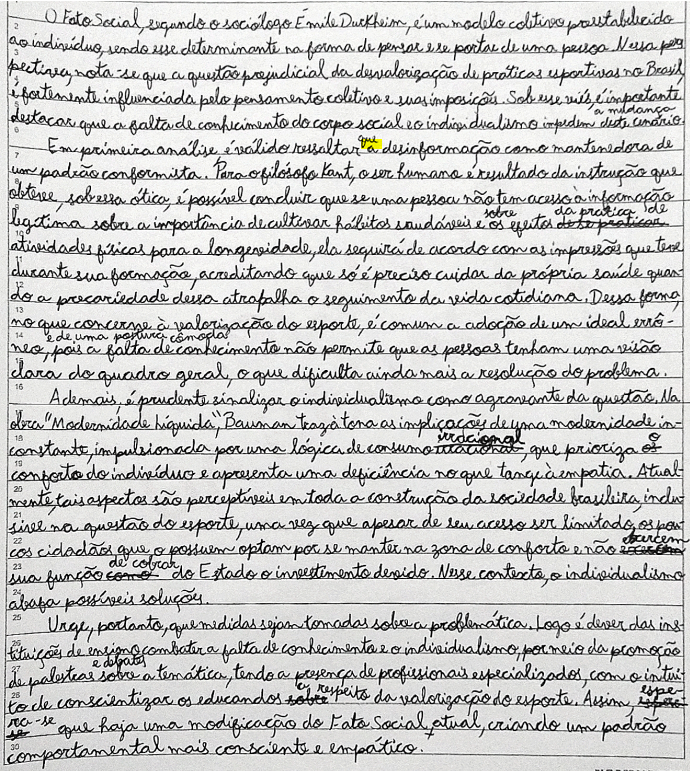 O Fato Social, segundo o sociólogo Émile Durkheim, é um modelo coletivo preestabelecido
ao indivíduo, sendo esse determinante na forma de pensar e se portar de uma pessoa. Nessa pers
pectiva, nota-se que a questão prejudicial da desvalorização de práticas esportivas no Brasil
é fortemente influenciada pelo pensamento coletivo e suas imposições. Sob esse viés, é importante
destacar que a falta de conhecimento do corpo social e o individualismo impedem a mudança deste cenário.
Em primeira análise é válido ressaltar que a desinformação como mantenedora de
um padrão conformista. Para o filósofo Kant, o ser humano é resultado da instrução que
obteve, sob essa ótica, é possível concluir que se uma pessoa não tem acesso à informação
legítima sobre a importância de cultivar hábitos saudáveis e sobre os efeitos da prática de
atividades físicas para a longevidade, ela seguirá de acordo com as impressões que teve
durante sua formação, acreditando que só é preciso cuidar da própria saúde quan-
do a precariedade dessa atrapalha o seguimento da vida cotidiana. Dessa forma,
no que concerne à valorização do esporte, é comum a adoção de um ideal errô-
neo, e de uma postura cômoda pois a falta de conhecimento não permite que as pessoas tenham uma visão
clara do quadro geral, o que dificulta ainda mais a resolução do problema.
Ademais, é prudente sinalizar o individualismo como agravante da questão. Na
obra "Modernidade Líquida", Bauman traz à tona as implicações de uma modernidade in-
constante, impulsionada por uma lógica de consumo irracional, que prioriza o
conforto do indivíduo e apresenta uma deficiência no que tange à empatia. Atual-
mente, tais aspectos são perceptíveis em toda a construção da sociedade brasileira, inclu-
sive na questão do esporte, uma vez que apesar de seu acesso ser limitado, os pou-
cos cidadãos que o possuem optam por se manter na zona de conforto e não exercem
sua função de cobrar do Estado o investimento devido. Nesse contexto, o individualismo
abafa possíveis soluções.
Urge, portanto, que medidas sejam tomadas sobre a problemática. Logo é dever das ins-
tituições de ensino combater a falta de conhecimento e o individualismo, por meio da promoção
de palestras e debates sobre a temática, tendo a presença de profissionais especializados, com o intui-
to de conscientizar os educandos a respeito da valorização do esporte. Assim, espe-
rar-se que haja uma modificação do Fato Social atual, criando um padrão
comportamental mais consciente e empático.